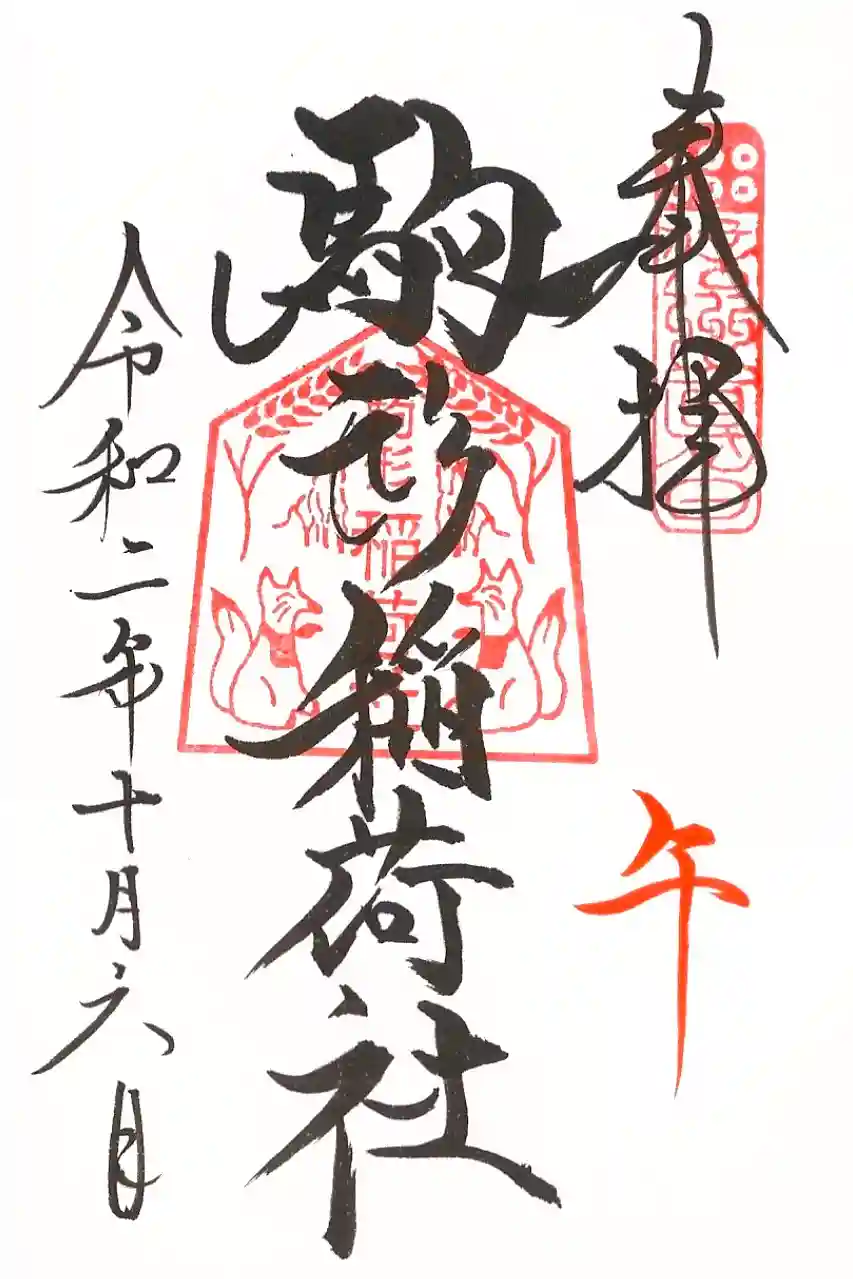 奉拝
午
駒形稲荷社
駒形稲荷
令和二年十月六日